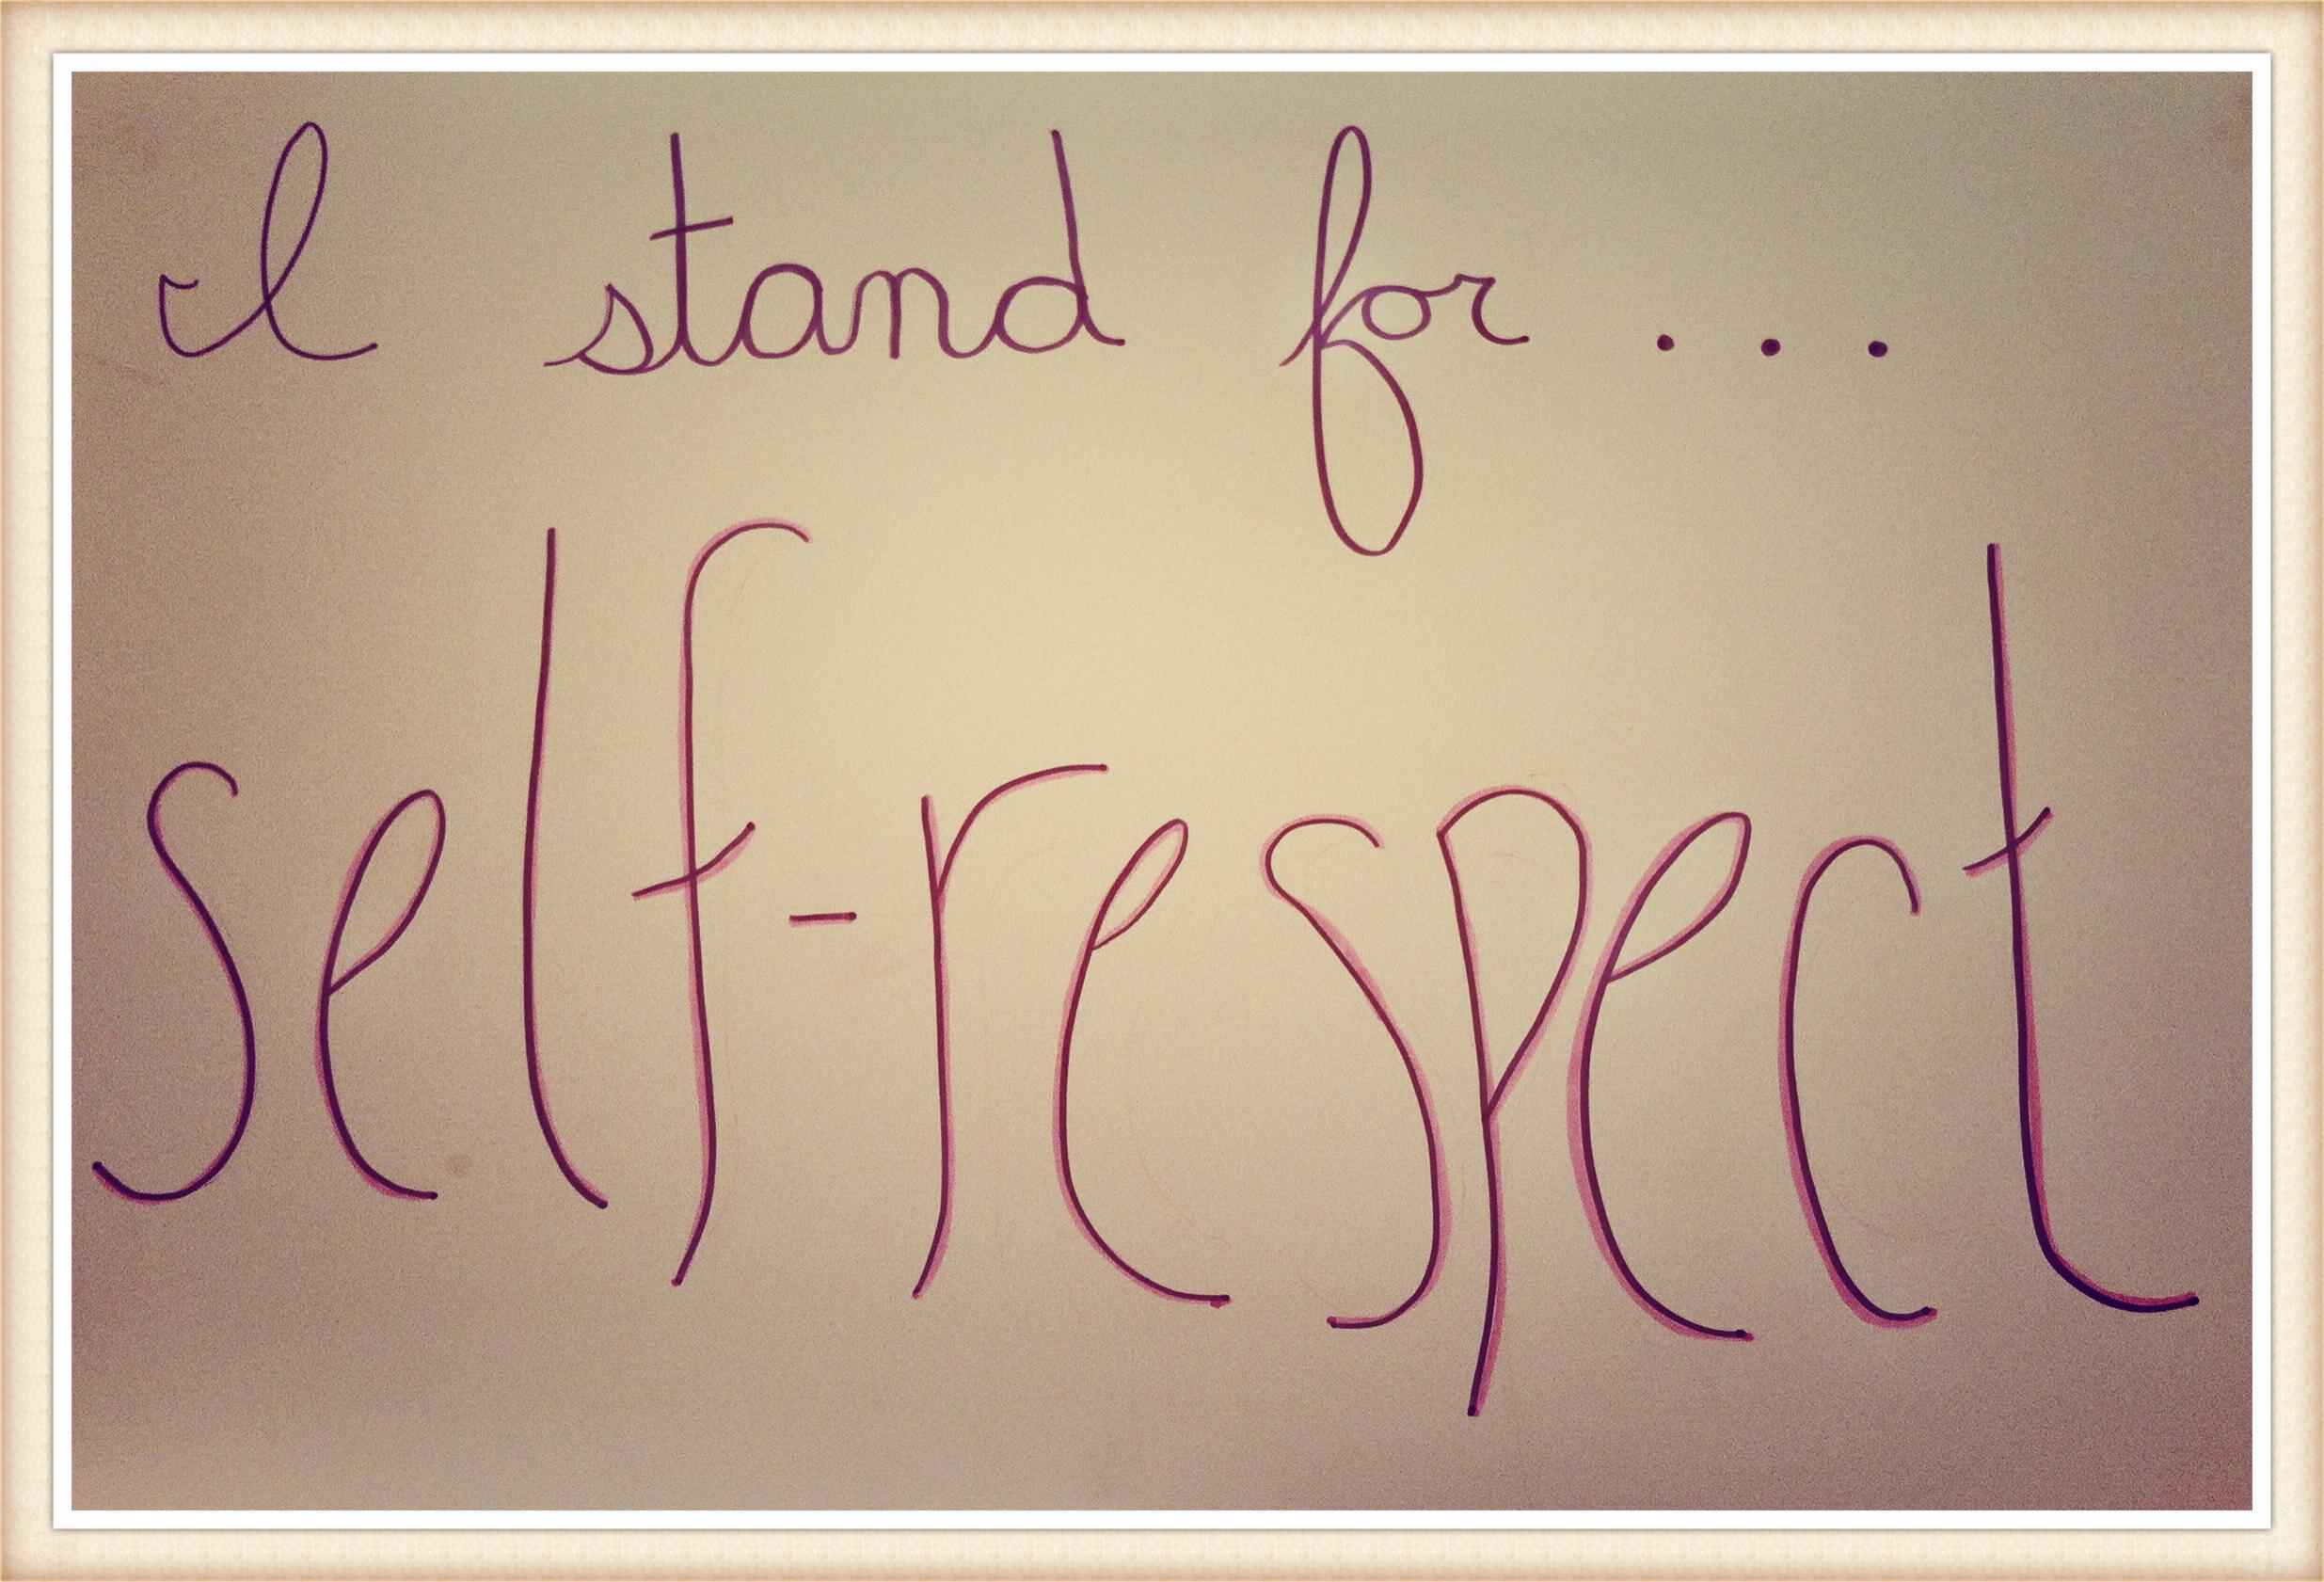 I stand for ....
self-respect